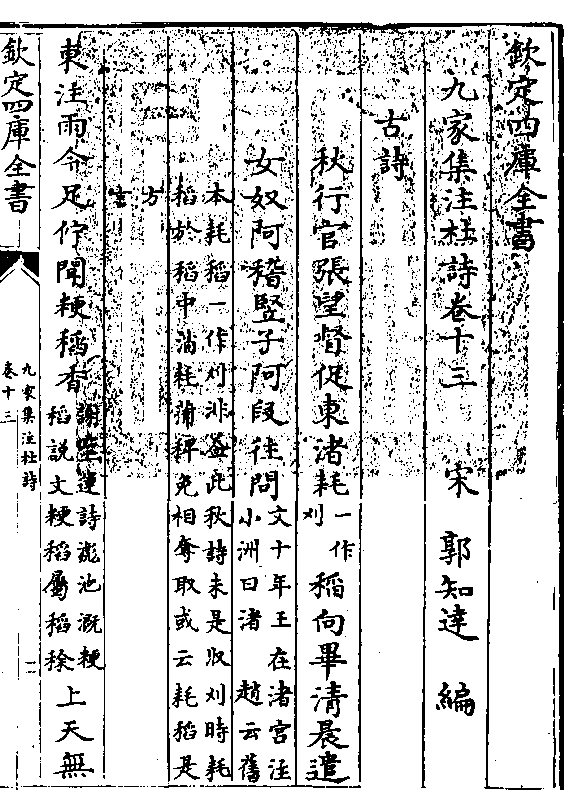 欽定四庫全書
九家集注杜詩卷十三　宋　郭知達　編
古詩
秋行官張望督促東渚耗一作刈稻向畢清晨遣
女奴阿稽豎子阿段往問文十年王在渚宮注小洲曰渚　趙云舊
本耗稻一作刈非蓋此秋詩未是收刈時耗
稻於稻中消耗蒲稗免相奪取或云耗稻是
方言
東注雨今足佇聞粳稻香謝靈運詩滮池溉粳稻説文粳稻屬稻稌上天無
欽定四庫全書
九家集注杜詩
卷十三
一